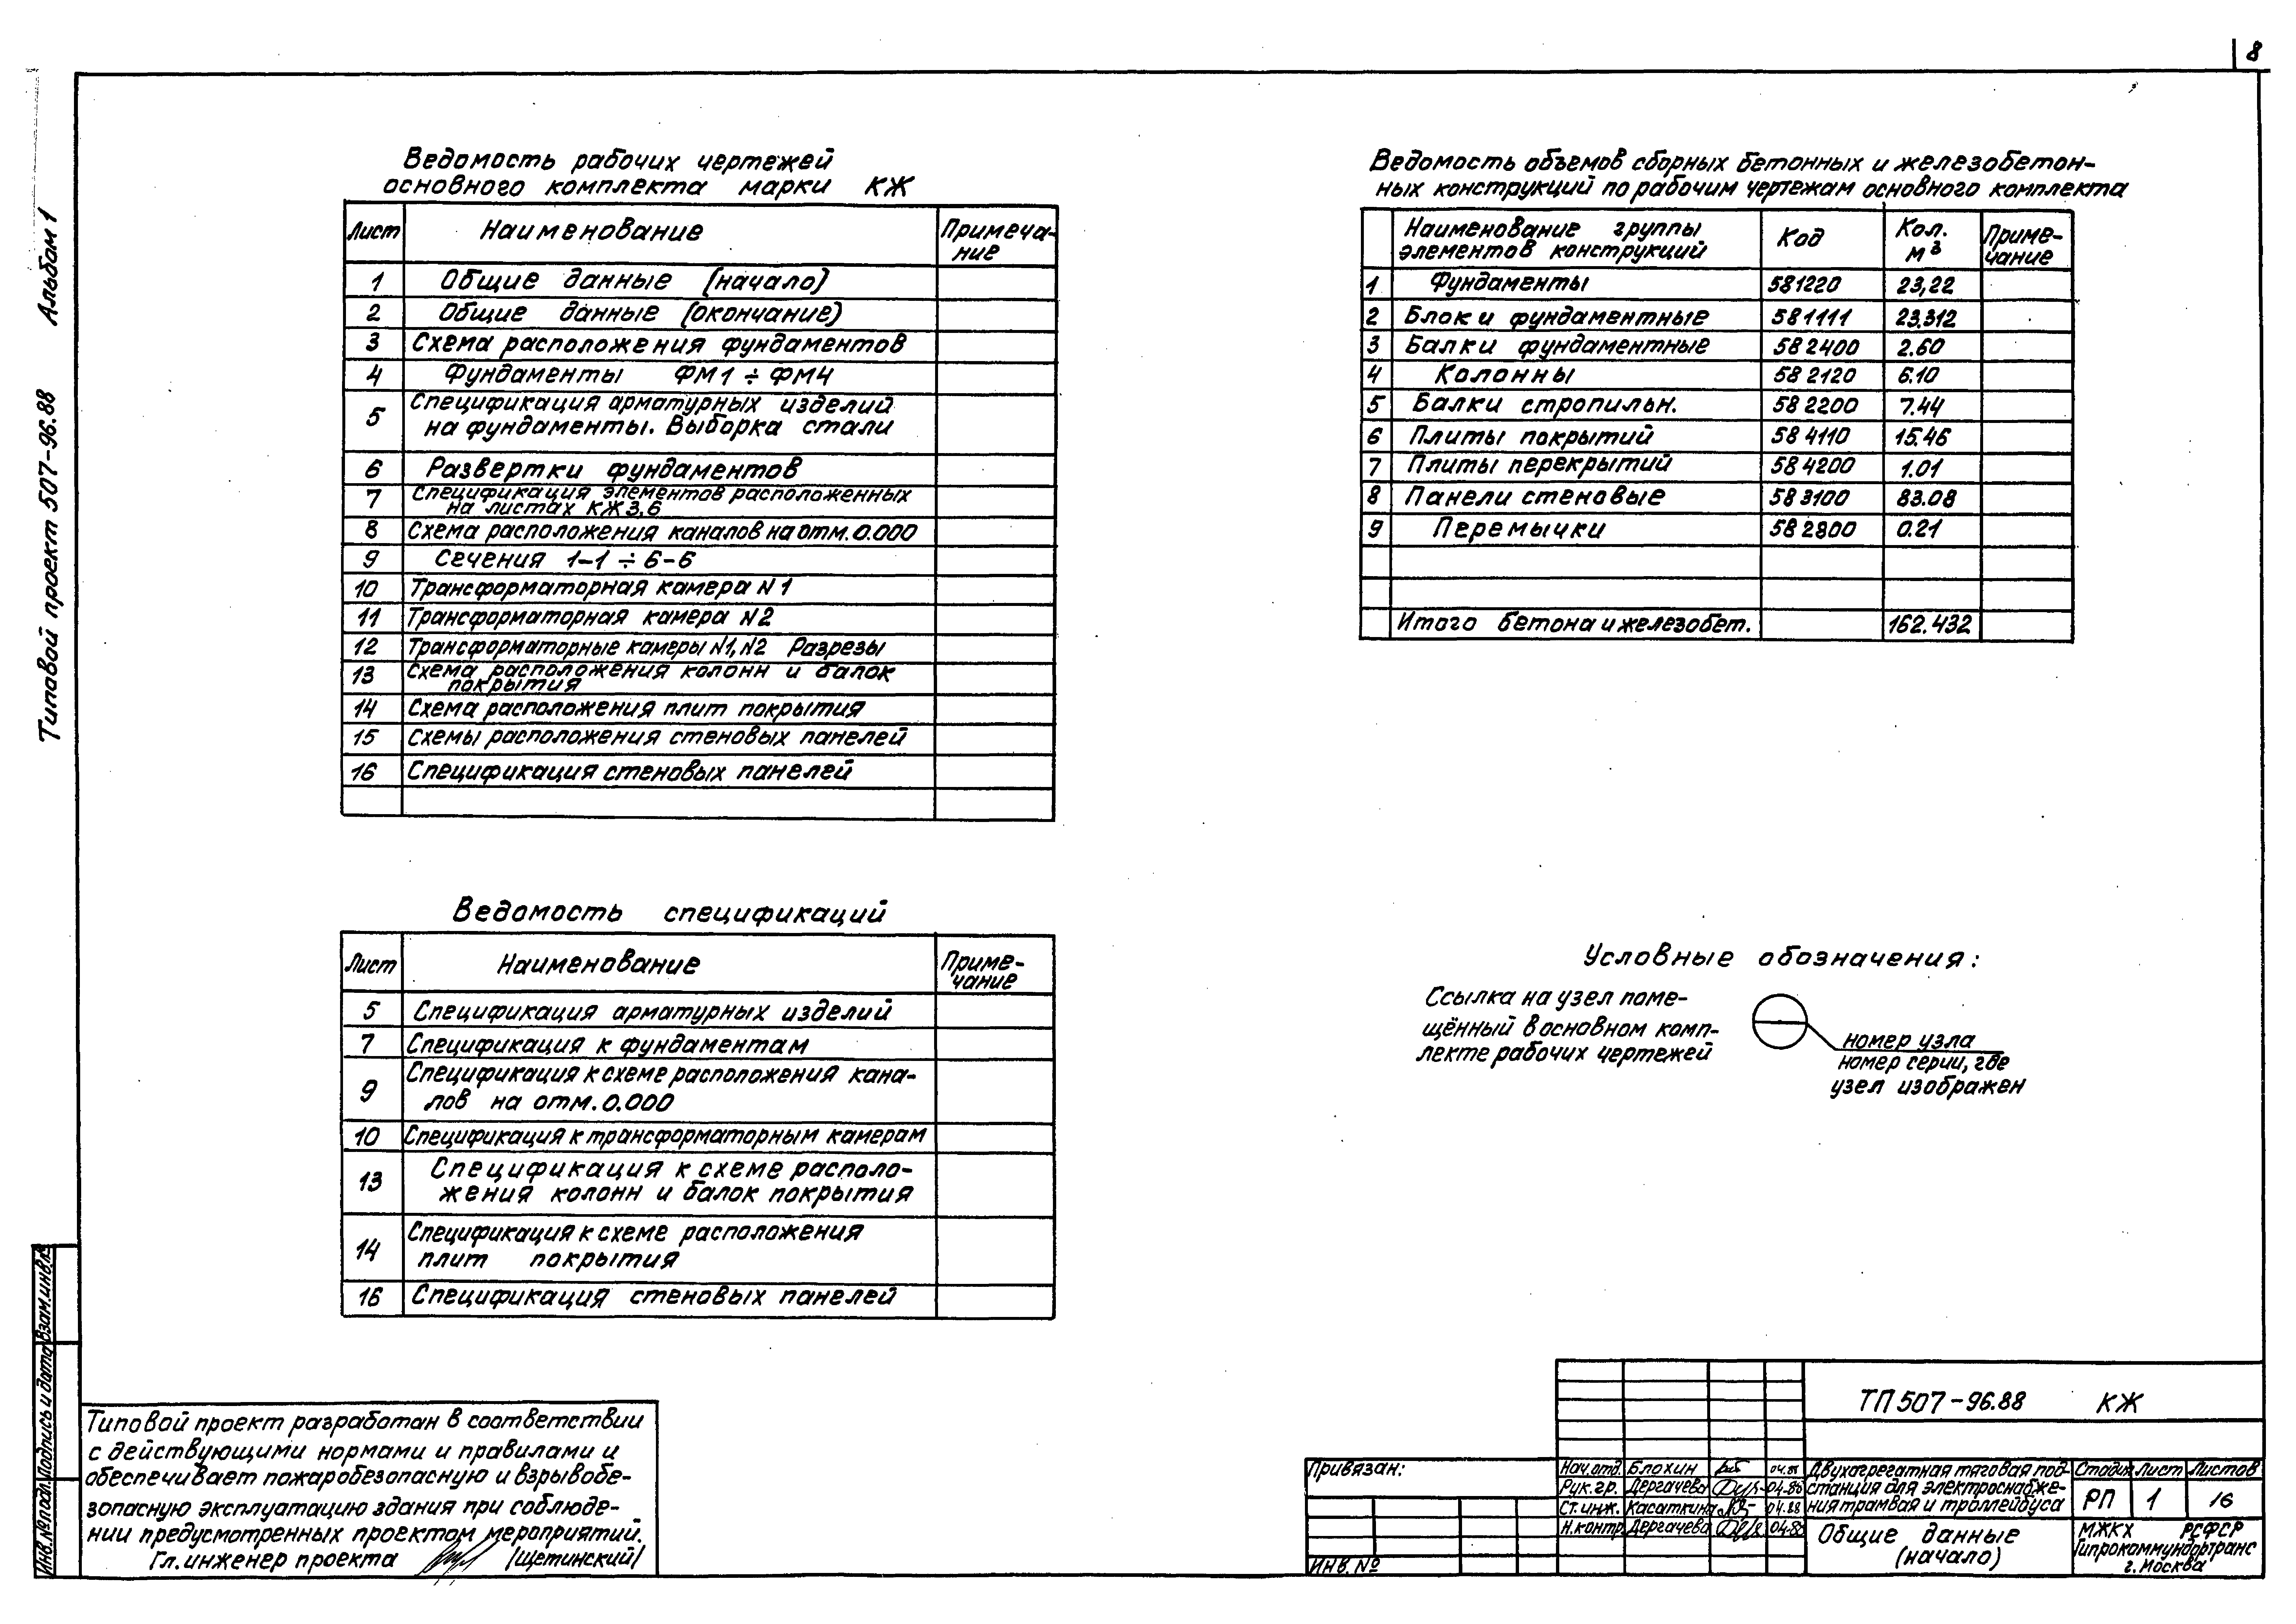 8
Типовой проект 507-96.88 Альбом 1
Ведомость рабочих чертежей
основного комплекта марки КЖ
Лист Наименование Примеча-
ние
1 Общие данные (начало)
2 Общие данные (окончание)
3 Схема расположения фундаментов
4 Фундаменты ФМ1 ÷ ФМ4
5 Спецификация арматурных изделий
на фундаменты. Выборка стали
6 Развертки фундаментов
7 Спецификация элементов расположенных
на листах КЖ3,6
8 Схема расположения каналов на отм. 0.000
9 Сечения 1-1 ÷ 6-6
10 Трансформаторная камера N1
11 Трансформаторная камера N2
12 Трансформаторные камеры N1, N2 Разрезы
13 Схема расположения колонн и балок
покрытия
14 Схема расположения плит покрытия
15 Схемы расположения стеновых панелей
16 Спецификация стеновых панелей
Ведомость спецификаций
Лист Наименование Приме-
чание
5 Спецификация арматурных изделий
7 Спецификация к фундаментам
9 Спецификация к схеме расположения кана-
лов на отм. 0.000
10 Спецификация к трансформаторным камерам
13 Спецификация к схеме располо-
жения колонн и балок покрытия
14 Спецификация к схеме расположения
плит покрытия
16 Спецификация стеновых панелей
Ведомость объемов сборных бетонных и железобетон-
ных конструкций по рабочим чертежам основного комплекта
Наименование группы
элементов конструкций Код Кол.
м³ Приме-
чание
1 Фундаменты 581220 23,22
2 Блоки фундаментные 581111 23.312
3 Балки фундаментные 582400 2.60
4 Колонны 582120 6.10
5 Балки стропильн. 582200 7.44
6 Плиты покрытий 584110 15.46
7 Плиты перекрытий 584200 1.01
8 Панели стеновые 583100 83.08
9 Перемычки 582800 0.21
Итого бетона и железобет. 162.432
Условные обозначения:
Ссылка на узел поме-
щённый в основном комп-
лекте рабочих чертежей
номер узла
номер серии, где
узел изображен
Типовой проект разработан в соответствии
с действующими нормами и правилами и
обеспечивает пожаробезопасную и взрывобе-
зопасную эксплуатацию здания при соблюде-
нии предусмотренных проектом мероприятий.
Гл. инженер проекта (Щетинский)
Инв. № подл. Подпись и дата Взам. инв. №
Привязан:
Инв. №
Нач. отд. Блохин
Рук. гр. Дергачева 04.88
Ст. инж. Касаткина 04.88
Н. контр. Дергачева 04.88
ТП 507-96.88 КЖ
Двухагрегатная тяговая под-
станция для электроснабже-
ния трамвая и троллейбуса
Стадия Лист Листов
РП 1 16
Общие данные
(начало)
МЖКХ РСФСР
Гипрокоммундортранс
г. Москва